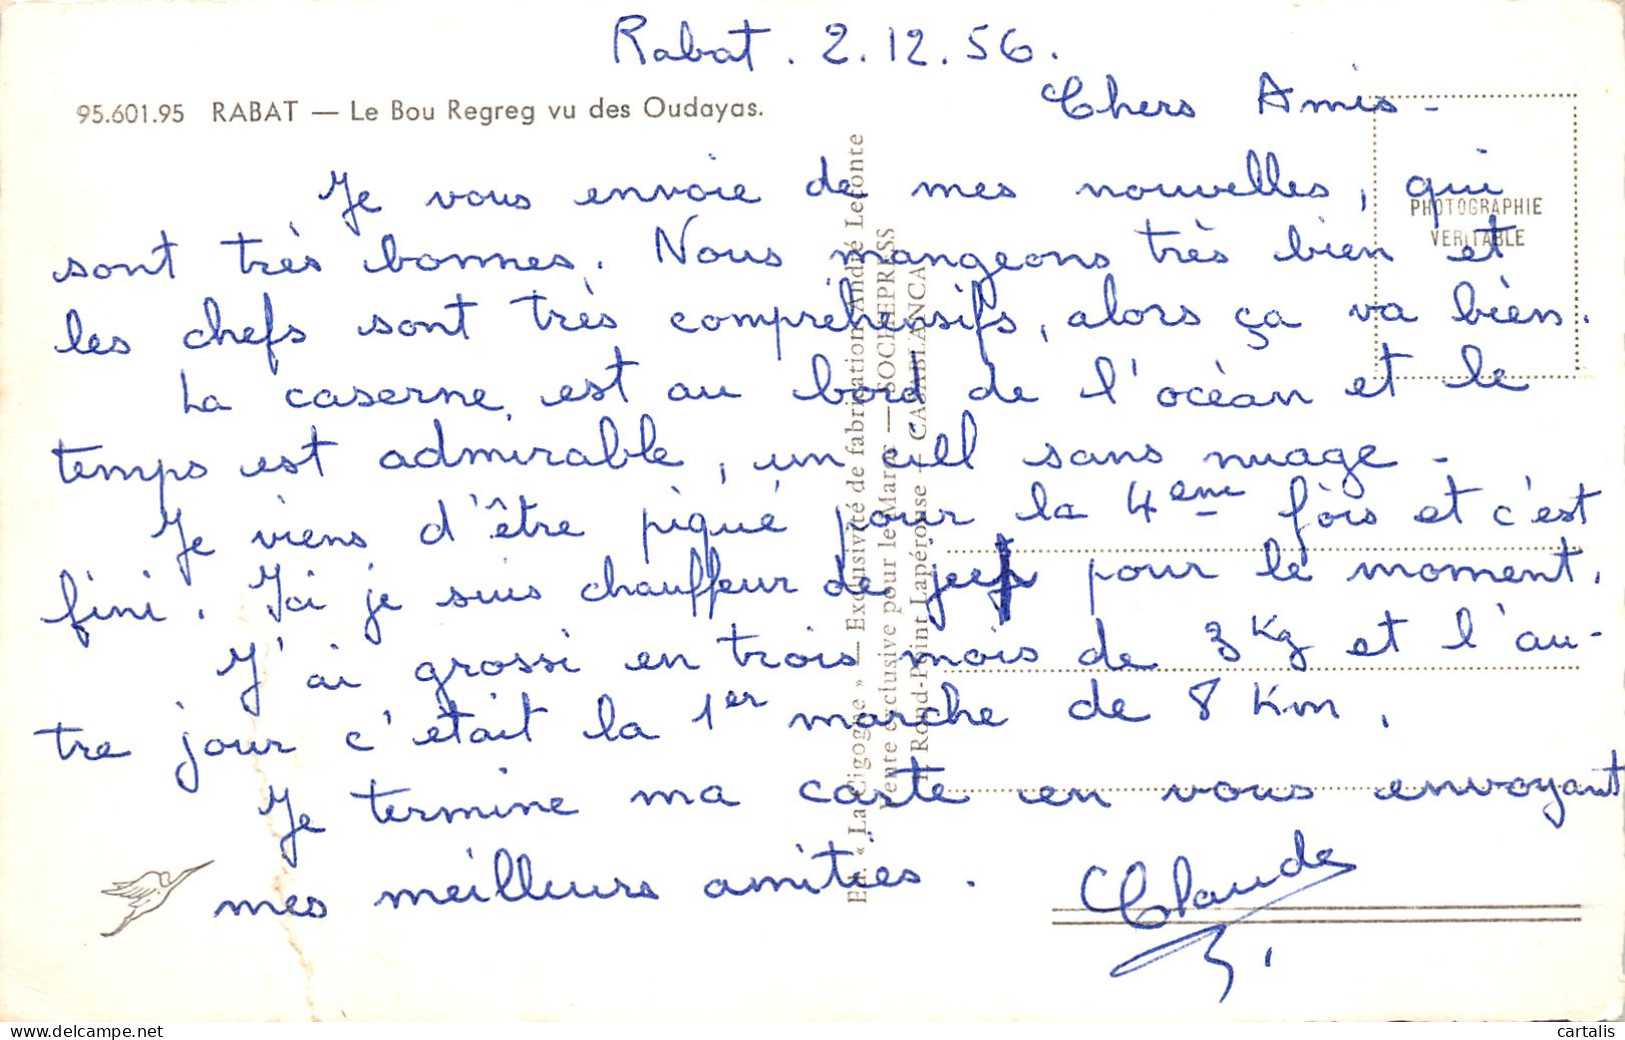 Rabat. 2.12.56.
95.601.95 RABAT — Le Bou Regreg vu des Oudayas.
Chers Amis -
Je vous envoie de mes nouvelles, qui
PHOTOGRAPHIE
VERITABLE
sont très bonnes. Nous mangeons très bien et
les chefs sont très compréhensifs, alors ça va bien.
La caserne est au bord de l'océan et le
temps est admirable, un ciel sans nuage -
Je viens d'être piqué pour la 4eme fois et c'est
fini. Ici je suis chauffeur de jeep pour le moment.
J'ai grossi en trois mois de 3 Kg et l'au-
tre jour c'était la 1er marche de 8 Km.
Je termine ma carte en vous envoyant
mes meilleurs amitiés.
Claude
Ed. « La Cigogne » — Exclusivité de fabrication André Leconte
Vente exclusive pour le Maroc — SOCHEPRESS
1, Rond-Point Lapérouse — CASABLANCA
cartalis
www.delcampe.net